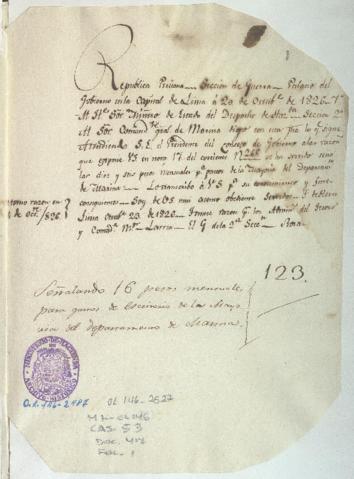 Republica Peruana — Seccion de Guerra — Palacio del
Gobierno en la Capital de Lima á 20 de Octubre de 1826 —
Al Sr. Ministro de Estado del Despacho de Hacienda — Seccion 2ª
Al Sor Comandte gral de Marina digo con esta fha lo q sigue
Atendiendo S.E. el Presidente del Consejo de Gobierno á las razones
que expone VS en nota 17 del corriente Nº 266 se ha servido seña
lar diez y seis pesos mensuales pª gastos de la Mayoria del departamen
to de Marina — Lo transcribo á VS pª su conocimiento y fines
consiguientes — Soy de VS muy atento obediente servidor —
Lima Octubre 23 de 1826 — Tomese razon
tomo razon en
de Octe/826
123.
Señalando 16 pesos mensuales
para gastos de Escritorio de la Mayo
ria del departamento de Marina.
MINISTERIO DE HACIENDA
O.L. 146-2487
OL 146-2527
MH-OL 146
CAJ. 53
DOC. 417
FOL. 1